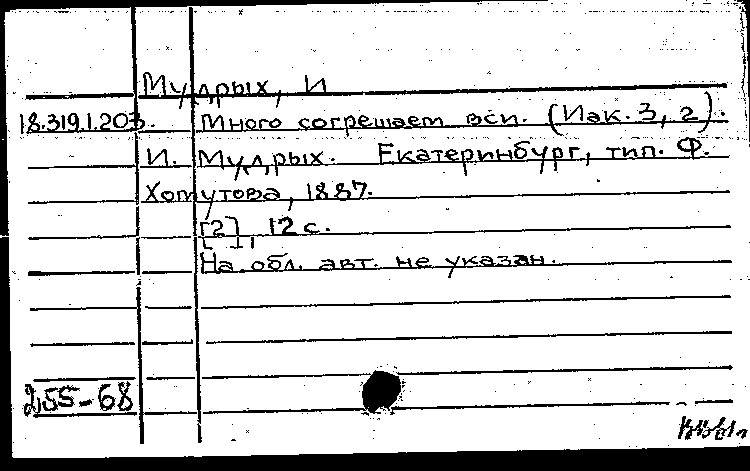 Мудрых, И
18.319.1.203. Много согрешаем вси. (Иак. 3, 2).
И. Мудрых. Екатеринбург, тип. Ф.
Хотутова, 1887.
[2], 12 с.
На обл. авт. не указан.
255-68